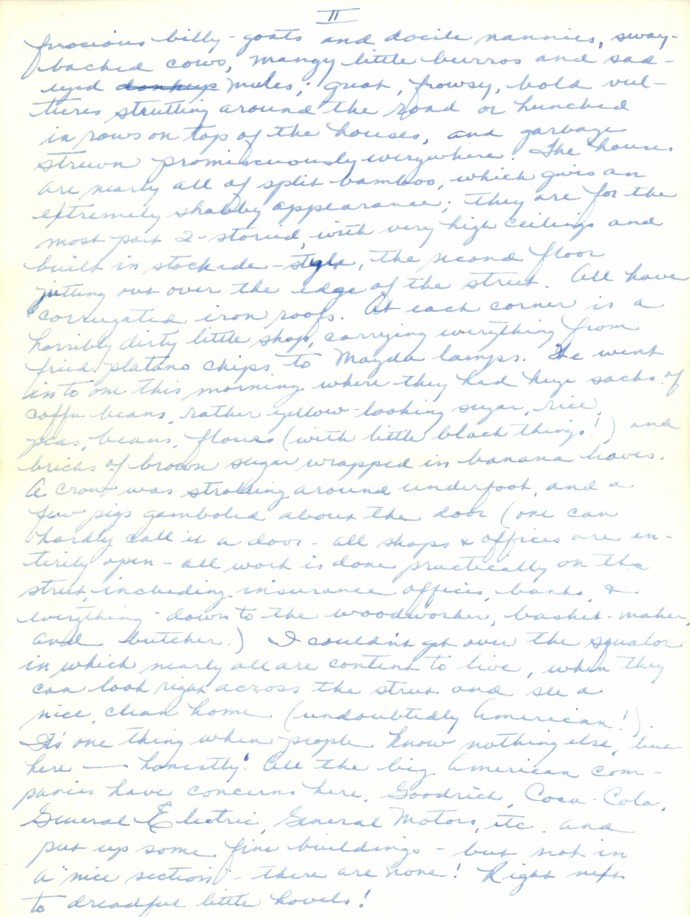 II
ferocious billy-goats and docile nannies, sway-
backed cows, mangy little burros and sad-
eyed donkeys mules; great, frowsy, bold vul-
tures strutting around the road or hunched
in rows on top of the houses, and garbage
strewn promiscuously everywhere. The houses
are nearly all of split bamboo, which gives an
extremely shabby appearance; they are for the
most part 2-storied, with very high ceilings and
built in stockade-style, the second floor
jutting out over the edge of the street. All have
corrugated iron roofs. At each corner is a
horribly dirty little shop, carrying everything from
fried platano chips to Mazda lamps. We went
into one this morning where they had huge sacks of
coffee beans, rather yellow-looking sugar, rice,
peas, beans, flour (with little black things!) and
bricks of brown sugar wrapped in banana leaves.
A crow was strolling around underfoot, and a
few pigs gamboled about the door (one can
hardly call it a door - all shops & offices are en-
tirely open - all work is done practically on the
street, including insurance offices, banks, &
everything - down to the woodworker, basket-maker,
and butcher.) I couldn't get over the squalor
in which nearly all are content to live, when they
can look right across the street and see a
nice, clean home (undoubtedly American!)
It's one thing when people know nothing else, but
here — honestly! All the big American com-
panies have concerns here, Goodrich, Coca-Cola,
General Electric, General Motors, etc. and
put up some fine buildings - but not in
a "nice section" - there are none! Right next
to dreadful little hovels!